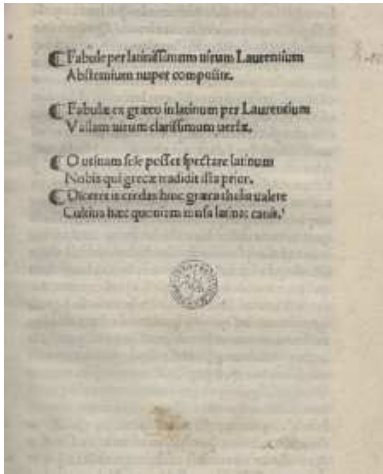 ¶ Fabule per latinissimum uirum Laurentium
Abstemium nuper composite.
¶ Fabulæ ex græco in latinum per Laurentium
Vallam uirum clarissimum uersæ.
¶ O utinam sese posset spectare latinum
Nobis qui grece tradidit ista prior.
¶ Diceret is credas hinc græca
Cultius hæc quoniam musa latina canit.